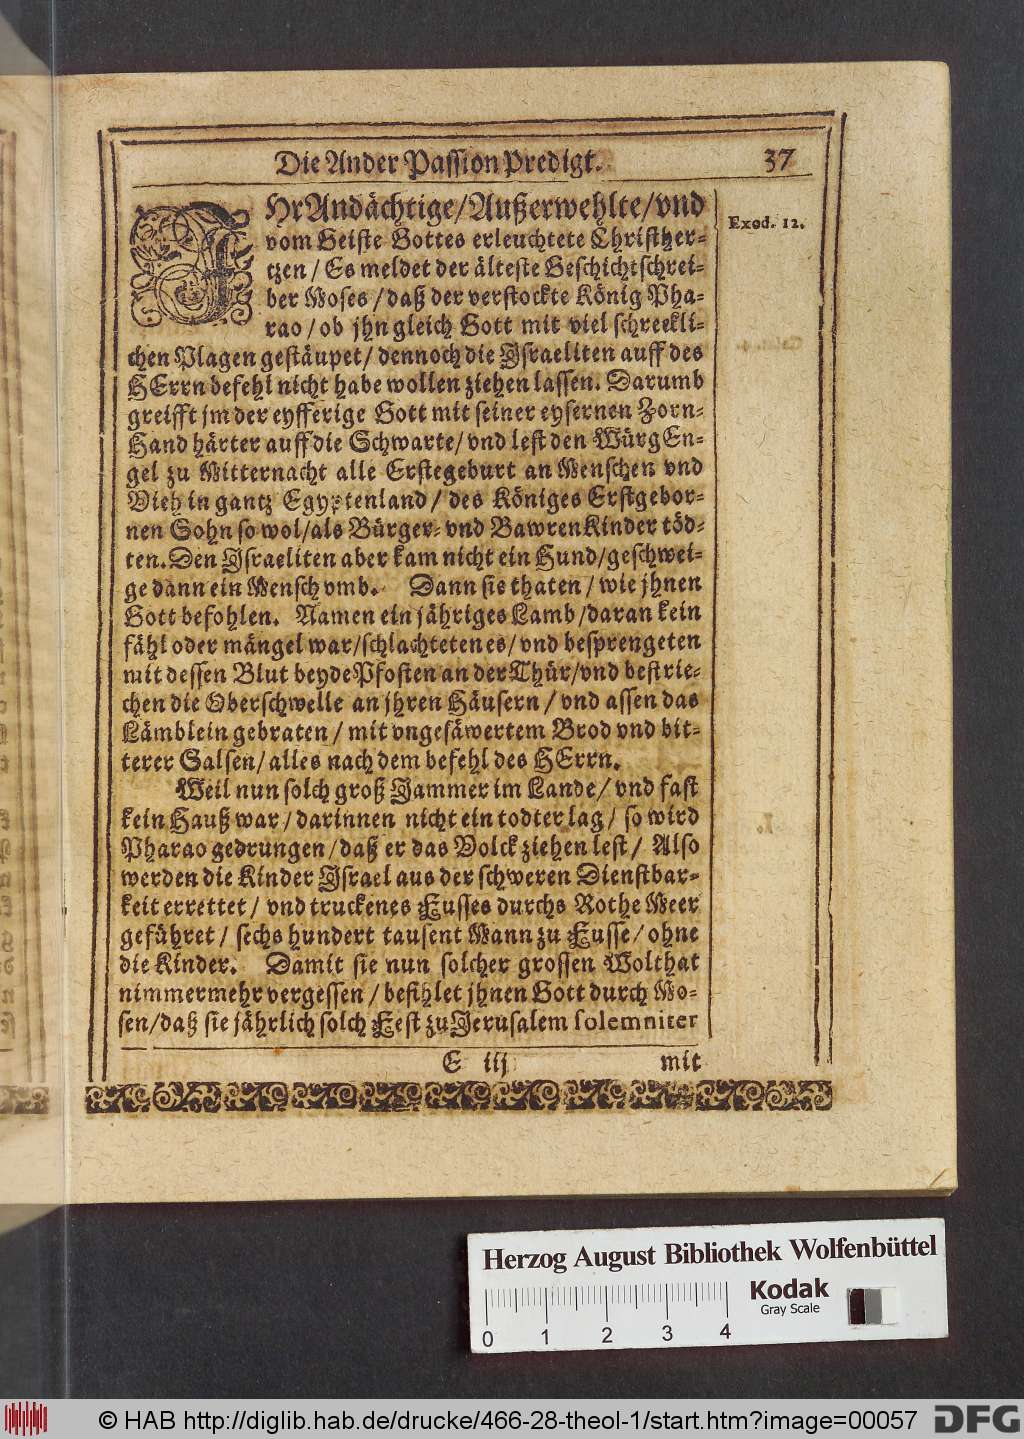 Die Ander Passion Predigt. 37
IHr Andächtige/Außerwehlte/vnd
Exod. 12.
vom Geiste Gottes erleuchtete Christher-
tzen / Es meldet der älteste Geschichtschrei-
ber Moses / daß der verstockte König Pha-
rao / ob jhn gleich Gott mit viel schreckli-
chen Plagen gestäupet / dennoch die Israeliten auff des
HErrn befehl nicht habe wollen ziehen lassen. Darumb
greifft jm der eyfferige Gott mit seiner eysernen Zorn-
Hand härter auff die Schwarte / vnd lest den WürgEn-
gel zu Mitternacht alle Erstegeburt an Menschen vnd
Vieh in gantz Egyptenland / des Königes Erstgebor-
nen Sohn so wol / als Bürger- vnd BawrenKinder töd-
ten. Den Israeliten aber kam nicht ein Hund / geschwei-
ge dann ein Mensch vmb. Dann sie thaten / wie jhnen
Gott befohlen. Namen ein jähriges Lamb / daran kein
fähl oder mängel war / schlachteten es / vnd besprengeten
mit dessen Blut beyde Pfosten an der Thür / vnd bestrie-
chen die Oberschwelle an jhren Häusern / vnd assen das
Lämblein gebraten / mit vngesäwertem Brod vnd bit-
terer Salsen / alles nach dem befehl des HErrn.
Weil nun solch groß Jammer im Lande / vnd fast
kein Hauß war / darinnen nicht ein todter lag / so wird
Pharao gedrungen / daß er das Volck ziehen lest / Also
werden die Kinder Israel aus der schweren Dienstbar-
keit errettet / vnd truckenes Fusses durchs Rothe Meer
geführet / sechs hundert tausent Mann zu Fusse / ohne
die Kinder. Damit sie nun solcher grossen Wolthat
nimmermehr vergessen / befihlet jhnen Gott durch Mo-
sen / daß sie jährlich solch Fest zu Jerusalem solemniter
E iij mit
Herzog August Bibliothek Wolfenbüttel
Kodak
Gray Scale
0 1 2 3 4
© HAB http://diglib.hab.de/drucke/466-28-theol-1/start.htm?image=00057
DFG